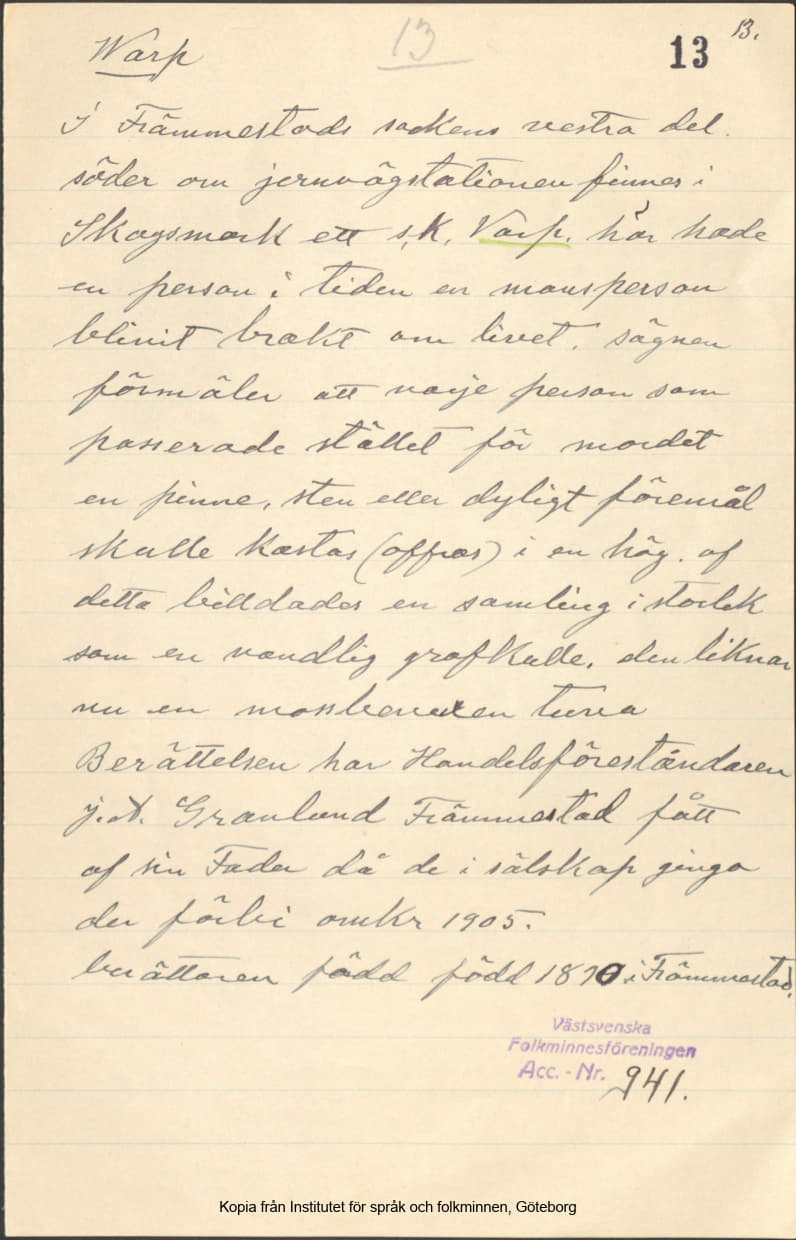 Warp
13
13
13.
I Främmestads sockens vestra del.
söder om jernvägstationen finnes i
Skogsmark ett s,k, Varp, här hade
en person i tiden en mansperson
blivit brakt om livet. sägnen
förmäler att varje person som
passerade stället för mordet
en pinne, sten eller dyligt föremål
skulle kastas (offras) i en hög. af
detta billdades en samling i storlek
som en vandlig grafkulle, den liknar
nu en mossbevuxen tuva
Berättelsen har Handelsföreståndaren
J.A. Granlund Främmestad fått
af sin Fader då de i sälskap gingo
der förbi omkr 1905.
berättaren född född 1890 i Främmestad.
Västsvenska
Folkminnesföreningen
Acc. - Nr. 941.
Kopia från Institutet för språk och folkminnen, Göteborg